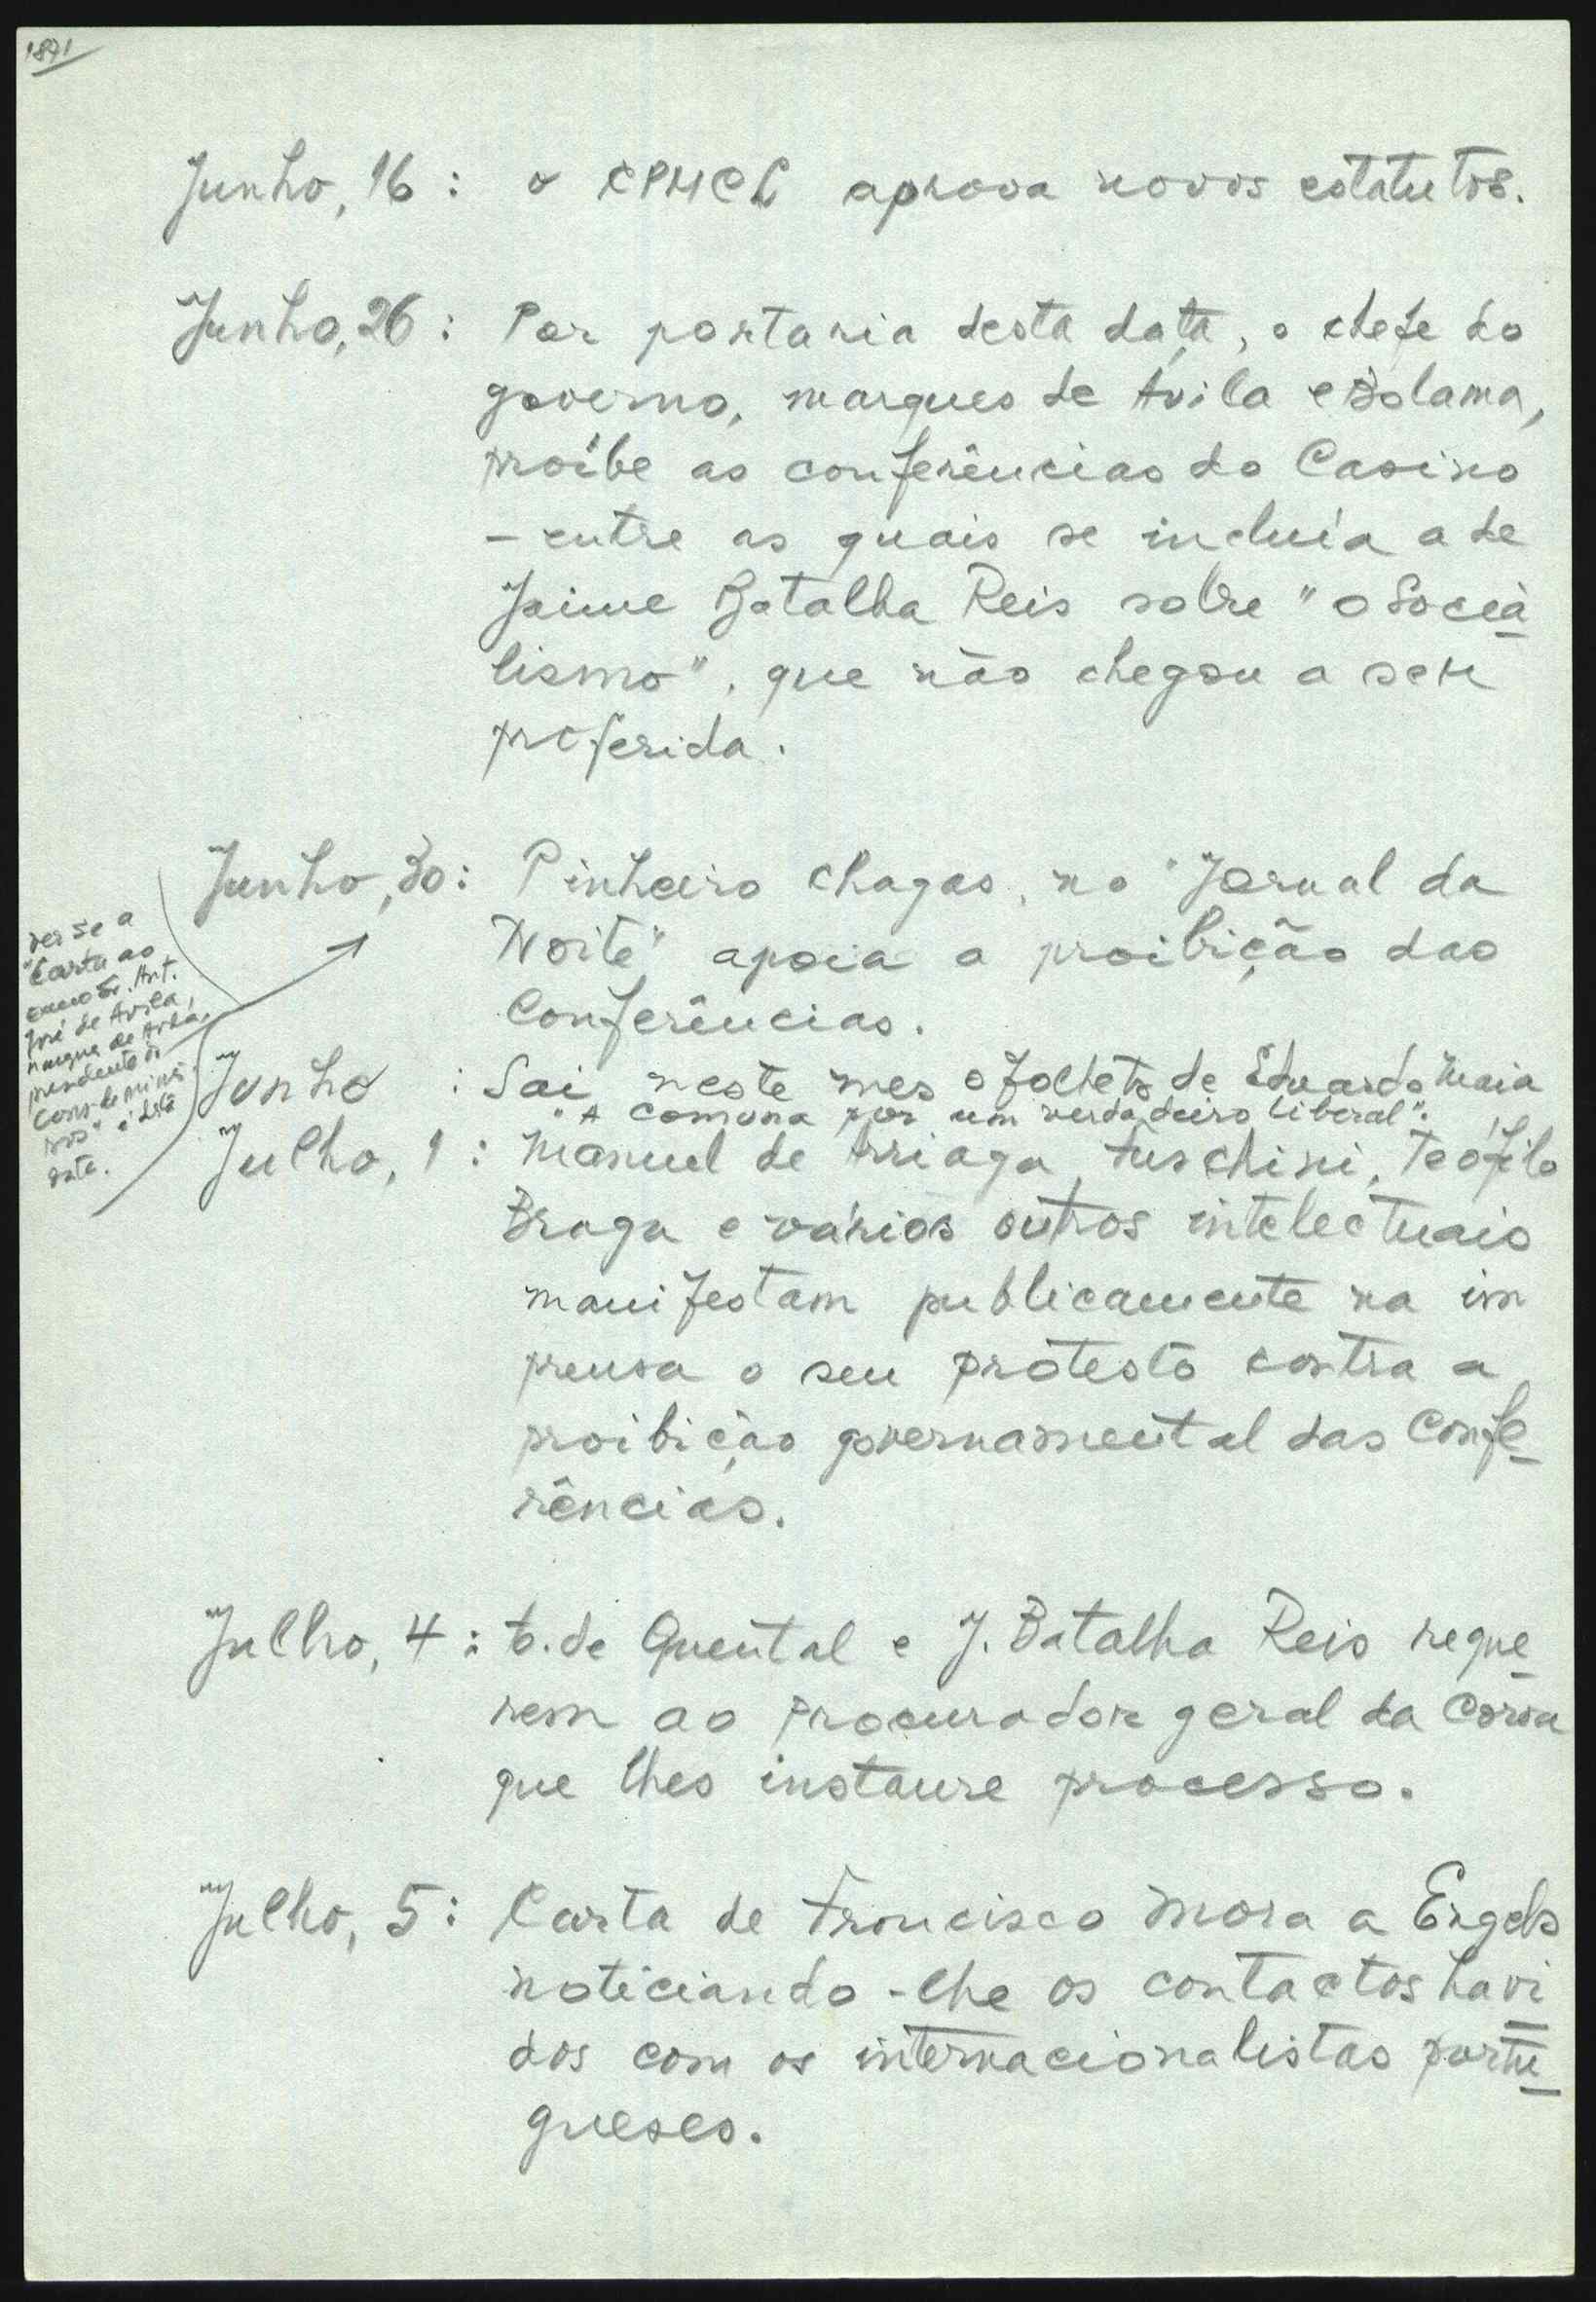 1871
Junho, 16 : o CPMCL aprova novos estatutos.
Junho, 26 : Por portaria desta data, o chefe do
governo, marques de Avila e Bolama,
proíbe as conferências do Casino
- entre as quais se incluía a de
Jaime Batalha Reis sobre "o Socia
lismo", que não chegou a ser
proferida.
Junho, 30 : Pinheiro Chagas, no "Jornal da
Noite" apoia a proibição das
Conferências.
ver se a
"Carta ao
exmo Sr. Ant.
José de Avila,
marques de Avila,
presidente do
Cons. de minis
tros" é desta
data.
Junho : Sai neste mes o folheto de Eduardo Maia
"A comuna por um verdadeiro liberal".
Julho, 1 : Manuel de Arriaga, Fuschini, Teófilo
Braga e vários outros intelectuais
manifestam publicamente na im
prensa o seu protesto contra a
proibição governamental das Confe
rências.
Julho, 4 : A. de Quental e J. Batalha Reis reque
rem ao Procurador geral da Coroa
que lhes instaure processo.
Julho, 5 : Carta de Francisco Mora a Engels
noticiando-lhe os contactos havi
dos com os internacionalistas portu
gueses.